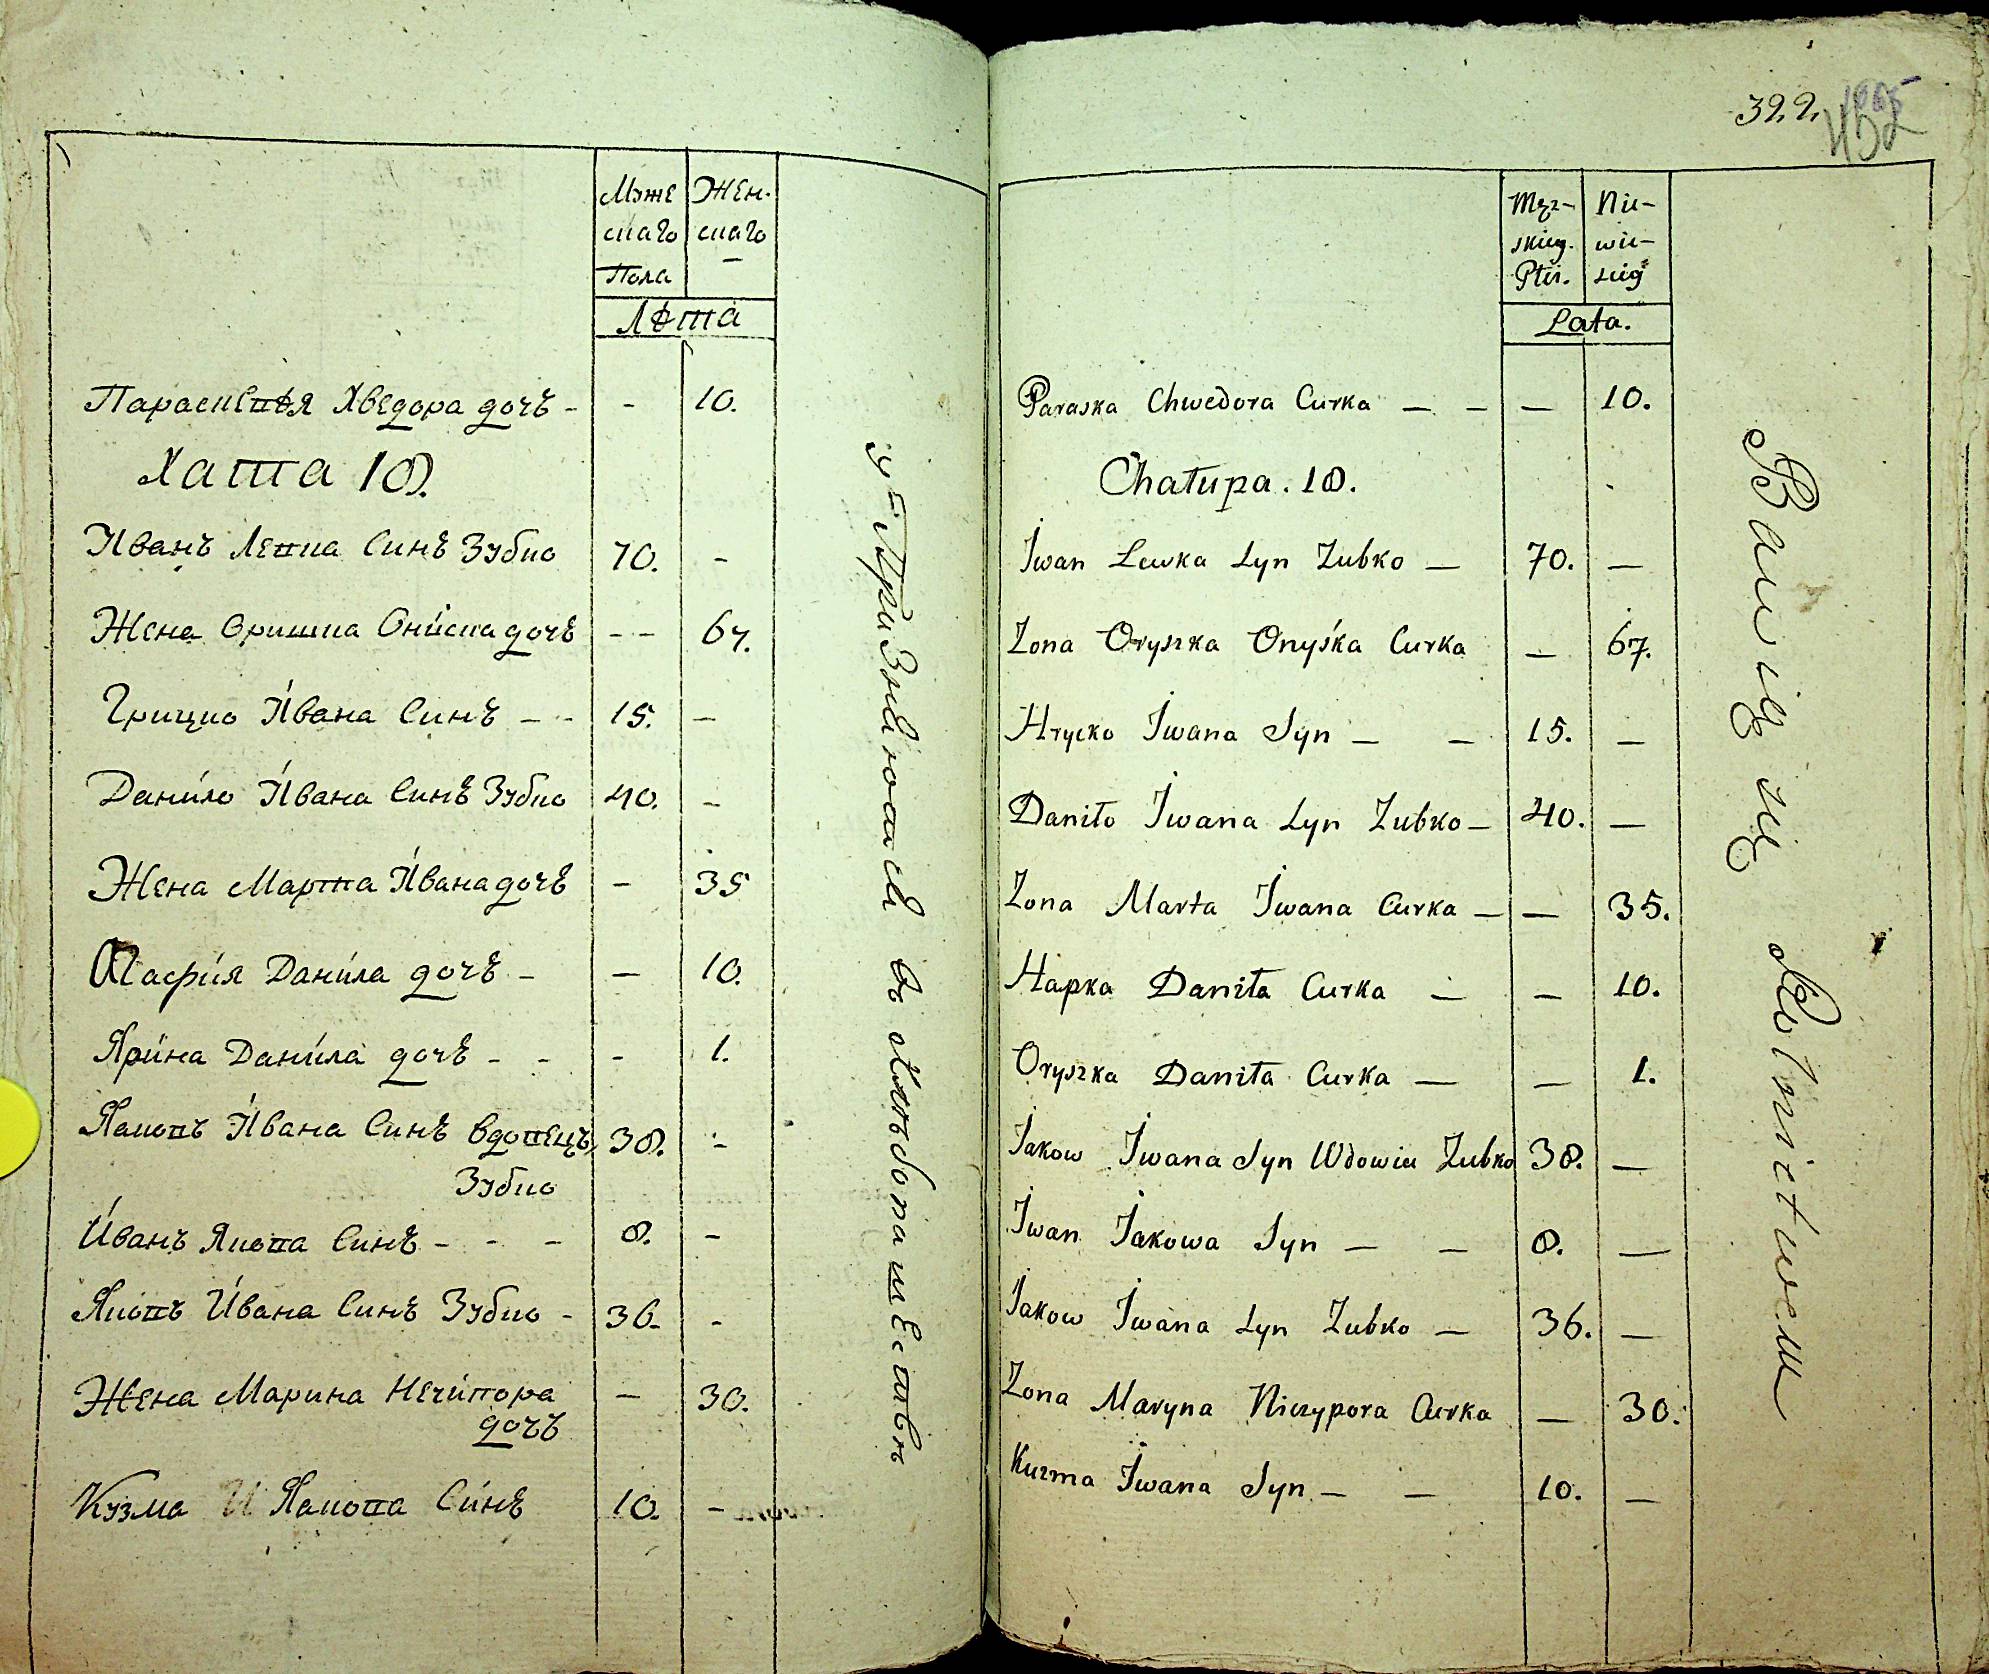 Муже
скаго
Пола
Жен.
скаго
Лѣта
Параскевѣя Хведора дочъ - - 10.
Хата 18.
Иванъ Левка Синъ Зубко 70. -
Жена Оришка Онйска дочъ - - 67.
Грицко Ивана Синъ - - 15. -
Данило Ивана Синъ Зубко 40. -
Жена Марта Ивана дочъ - 35
Агафия Данила дочъ - - 10.
Ярина Данила дочъ - - - 1.
Яковъ Ивана Синъ вдовецъ 38. -
Зубко
Иванъ Якова Синъ - - - 8. -
Яковъ Ивана Синъ Зубко - 36. -
Жена Марина Нечипора - 30.
дочъ
Кузма И Якова Синъ 10. -
322.
Męz-
skieg.
Płci.
Nie-
wie-
scieg
Lata.
Paraska Chwedora Curka — - — 10.
Chałupa. 18.
Iwan Lewka Syn Zubko — 70. —
Zona Oryszka Onyśka Curka — 67.
Hrycko Iwana Syn — — 15. —
Daniło Iwana Syn Zubko — 40. —
Zona Marta Iwana Curka — — 35.
Hapka Daniła Curka — — 10.
Oryszka Daniła Curka — — 1.
Jakow Iwana Syn Wdowiec Zubko 38. —
Iwan Jakowa Syn — — 8. —
Jakow Iwana Syn Zubko — 36. —
Zona Maryna Niczypora Curka — 30.
Kuzma Iwana Syn — — 10. —